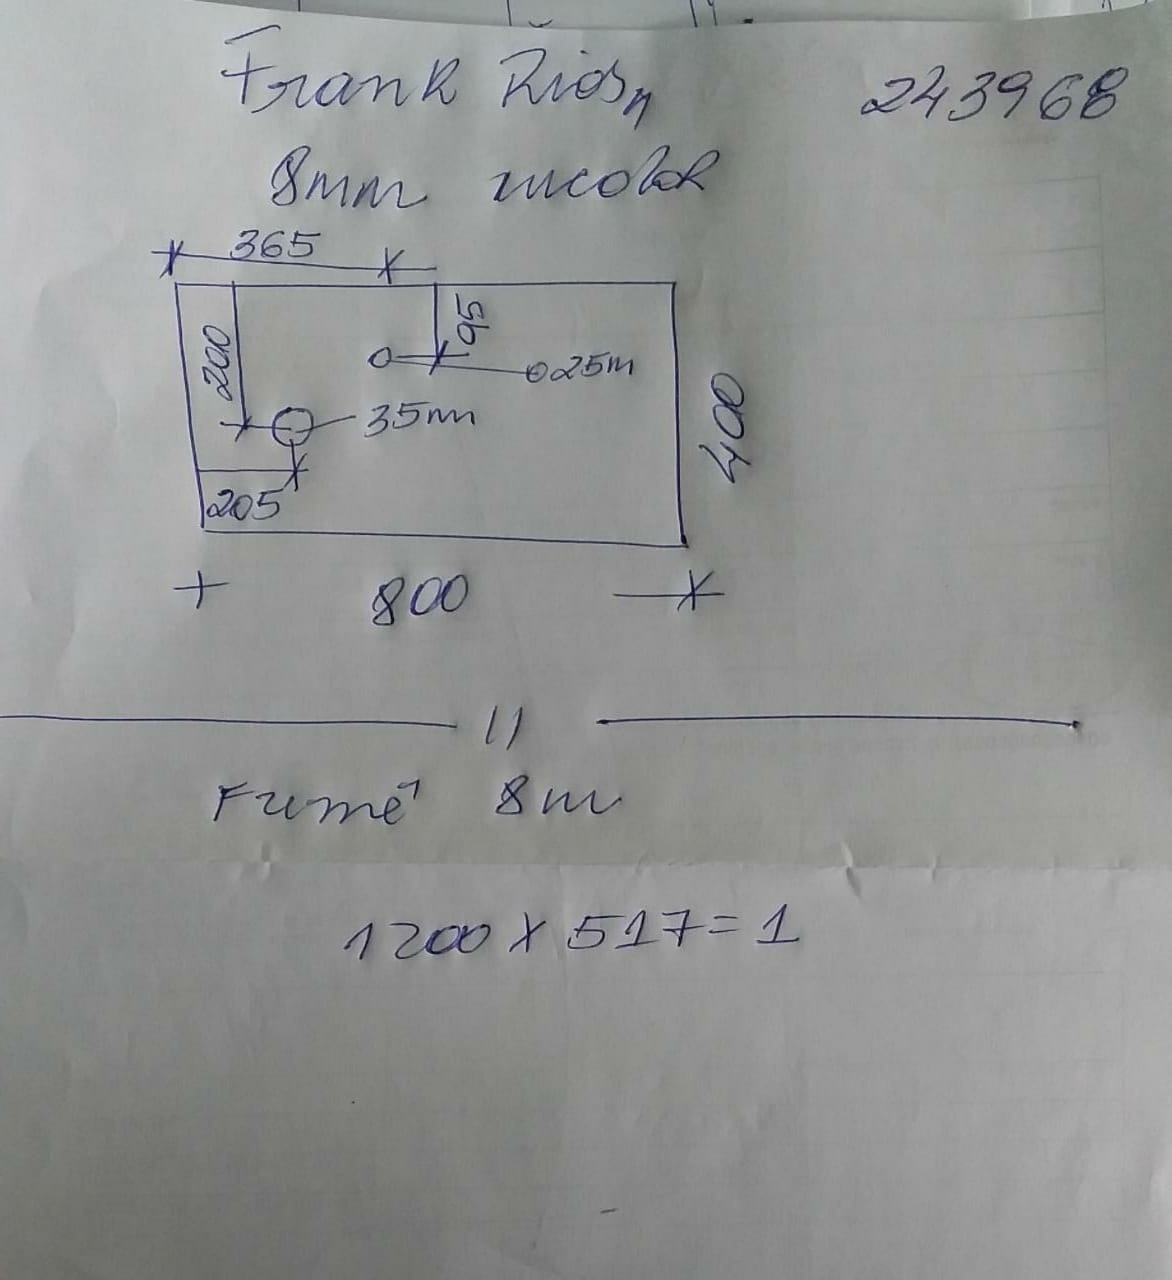 Frank Rios 243968
8mm incolor
365
200
95
ø25m
35mm
400
205
800
11
Fumê 8m
1200 x 517 = 1